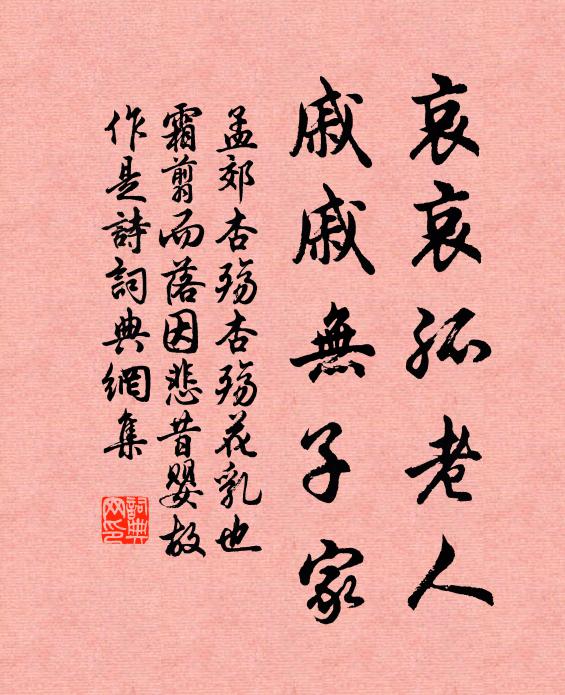 哀哀孤老人
戚戚無子家
孟郊杏殤杏殤花乳也
霜翦而落因悲昔嬰故
作是詩詞典網集
詞典
网印